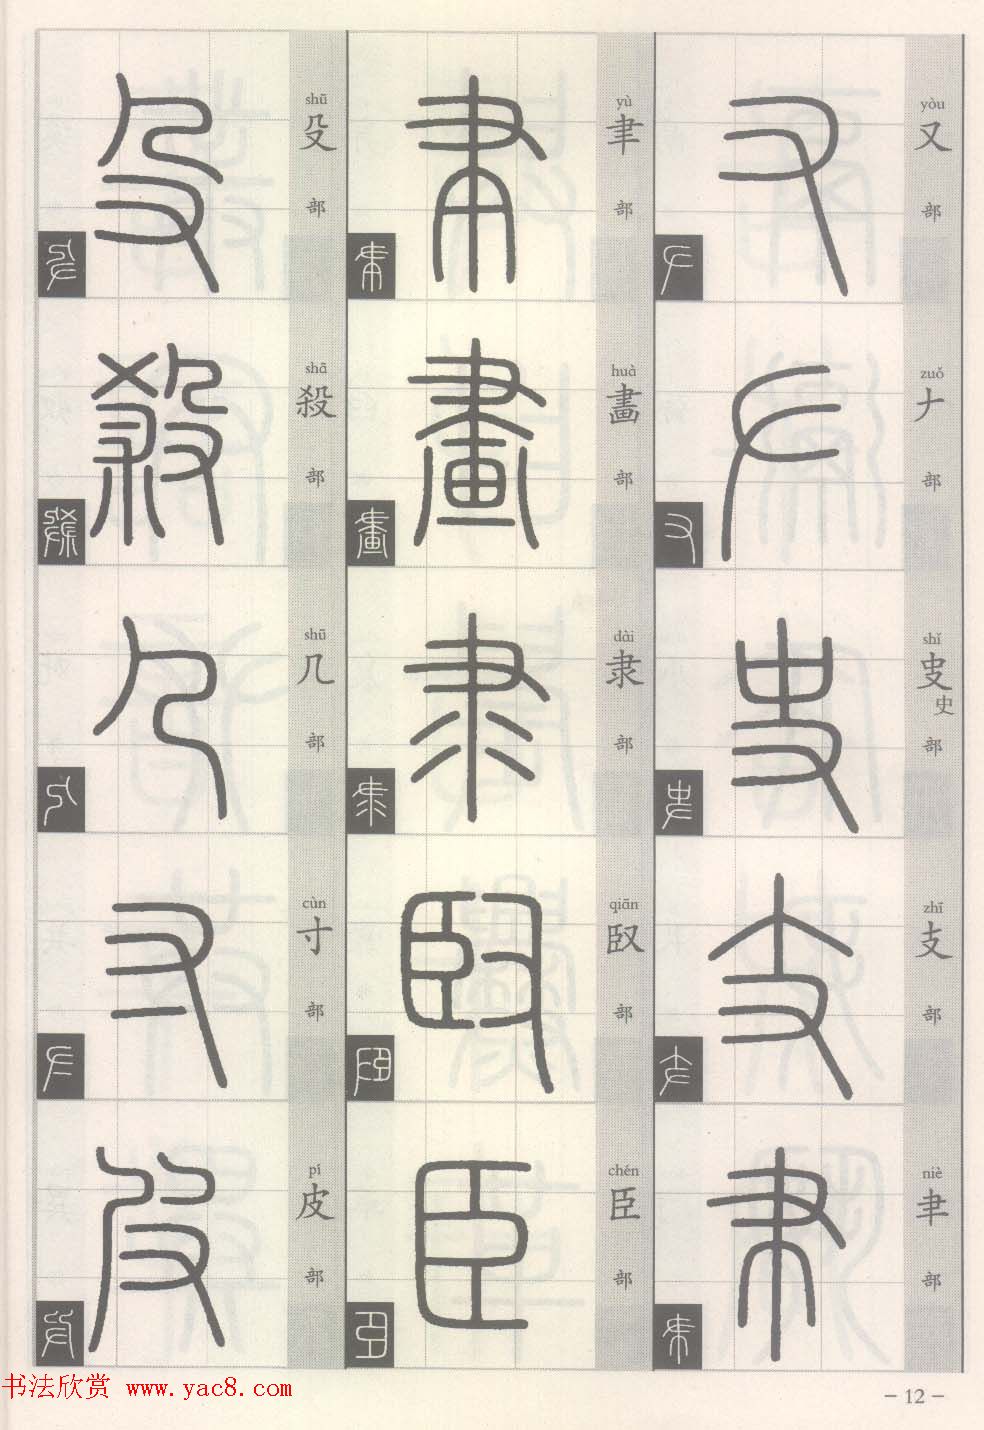 yòu
又部
zuǒ
𠂇部
shǐ
㕜史部
zhī
支部
niè
𦘒部
yù
聿部
huà
畫部
dài
隶部
qiān
臤部
chén
臣部
shū
殳部
shā
殺部
shū
几部
cùn
寸部
pí
皮部
书法欣赏 www.yac8.com
- 12 -